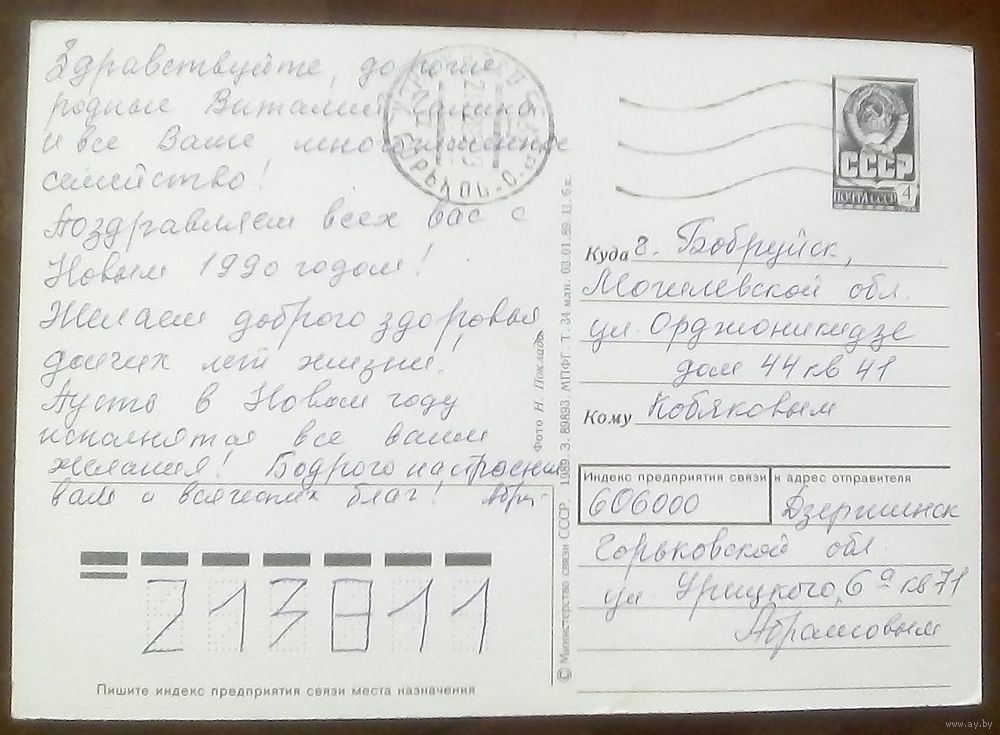 Здравствуйте, дорогие
родные Виталий, Галина
и все Ваше многочисленное
семейство!
Поздравляем всех вас с
Новым 1990 годом!
Желаем доброго здоровья
долгих лет жизни!
Пусть в Новом году
исполнятся все ваши
желания! Бодрого настроения
вам и всяческих благ!
Пишите индекс предприятия связи места назначения
213811
Фото Н. Поклада
© Министерство связи СССР. 1989. З. 89893. МПФГ. Т. 34 млн. 03.01.89. Ц. 6 к.
СССР
ПОЧТА СССР 4
Куда г. Бобруйск,
Могилевской обл.
ул. Орджоникидзе
дом 44 кв 41
Кому Кобяковым
Индекс предприятия связи и адрес отправителя
606000 Дзержинск
Горьковской обл.
ул Урицкого, 6а кв 71
Абрамовым
www.ay.by